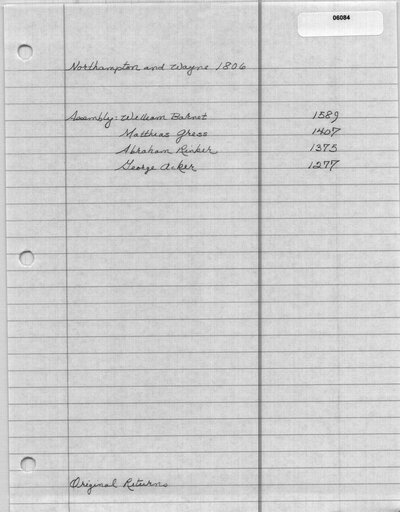 06084
Northampton and Wayne 1806
Assembly: William Barnet 1589
Matthias Gress 1407
Abraham Rinker 1375
George Acker 1277
Original Returns